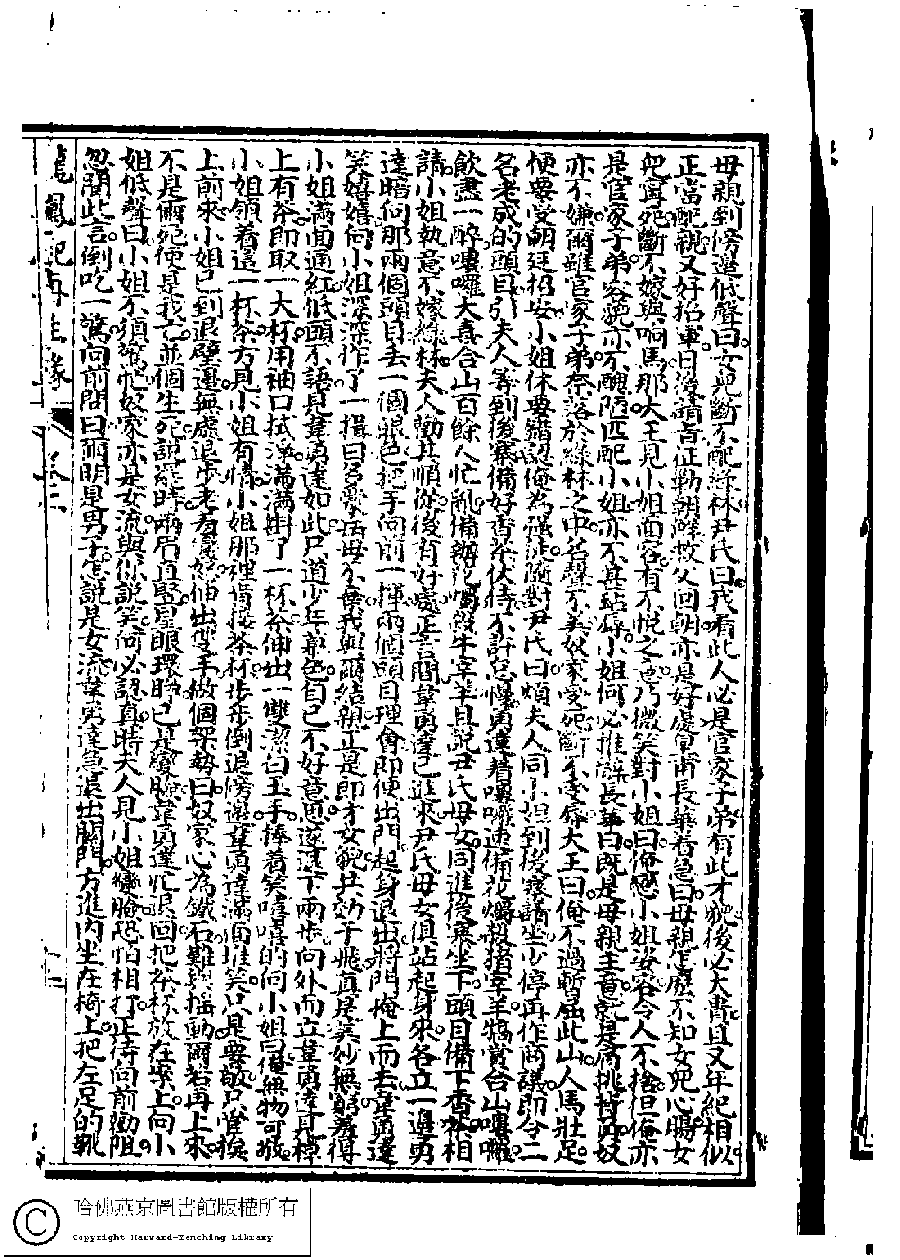 母親到傍邊低聲曰女兒斷不配綠林尹氏曰我看此人必是官家子弟有此才貌後必大貴且又年紀相似
正當配親又好招軍日後請旨征勦朝鮮救父回朝亦是好處甫長華着急曰母親怎麼不知女兒心腸女
兒寧死斷不嫁與响馬那大王見小姐面容有不悅之色乃微笑對小姐曰俺戀小姐姿容令人不捨但俺亦
是官家子弟容貌亦不醜陋匹配小姐亦不甚玷辱小姐何必推辭長華曰既是母親主意就是刀挑持丹奴
亦不嫌爾雖官家子弟奈落於綠林之中名聲不美奴家受死斷不受辱大王曰俺不過暫屈此山人馬壯足
便要受朝廷招安小姐休要錯認俺為強徒隨對尹氏曰煩夫人同小姐到後寨請坐少停再作商議即令二
名老成的頭目引夫人等到後寨備好香茶伏待不許怠慢勇達着嘍囉速備花燭殺猪宰羊犒賞合山嘍囉
飲盡一醉嘍囉大喜合山百餘人忙亂備辦花燭殺牛宰羊且說尹氏母女同進後寨坐下頭目備下香茶相
請小姐執意不嫁綠林夫人勸其順從後有好處正言間韋勇達已進來尹氏母女俱站起身來各立一邊勇
達暗向那兩個頭目丟一個眼色把手向前一揮兩個頭目理會即便出門起身退出將門掩上而去韋勇達
笑嬉嬉向小姐深深作了一揖曰多蒙岳母不棄我與爾結親正是郎才女貌共効于飛真是美妙無窮羞得
小姐滿面通紅低頭不語見韋勇達如此只道少年慕色自己不好意思遂退下兩步向外而立韋勇達見桌
上有茶即取一大杯用袖口拭淨滿滿斟了一杯茶伸出一雙潔白玉手捧着笑嘻嘻的向小姐曰俺無物可敬
小姐領着這一杯茶方見小姐有情小姐那裡肯接茶杯步步倒退傍邊韋勇達滿面堆笑只是要敬只管挨
上前來小姐已到退壁邊無處退步老着羞恥伸出雙手做個架勢曰奴家心為鐵石難與搖動爾若再上來
不是爾死便是我亡並個生死說罷時兩眉直竪星眼環睜已是變臉韋勇達忙退回把茶杯放在桌上向小
姐低聲曰小姐不須着忙奴家亦是女流與你說笑何必認真時夫人見小姐變臉恐怕相打正待向前勸阻
忽聞此言倒吃一驚向前問曰爾明是男子怎說是女流韋勇達急退出關門方進內坐在椅上把左足的靴
龍鳳配再生緣
卷二
哈佛燕京圖書館版權所有
Copyright Harvard-Yenching Library